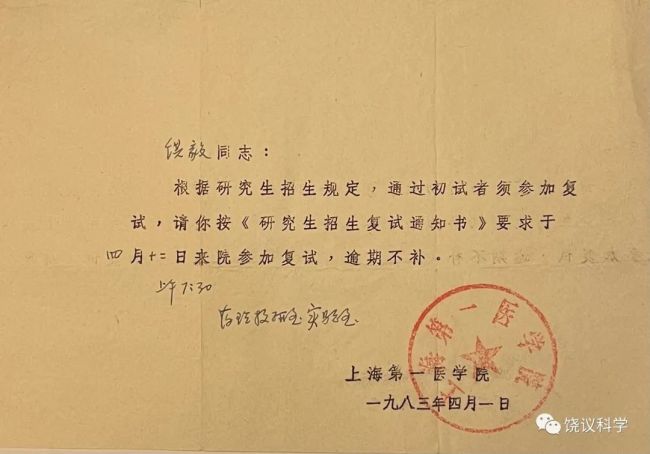 饶毅同志：
根据研究生招生规定，通过初试者须参加复
试，请你按《研究生招生复试通知书》要求于
四月十二日来院参加复试，逾期不补。
上午7:30
药理教研室实验室
上海第一医学院
一九八三年四月一日
上海第一医学院
饶议科学